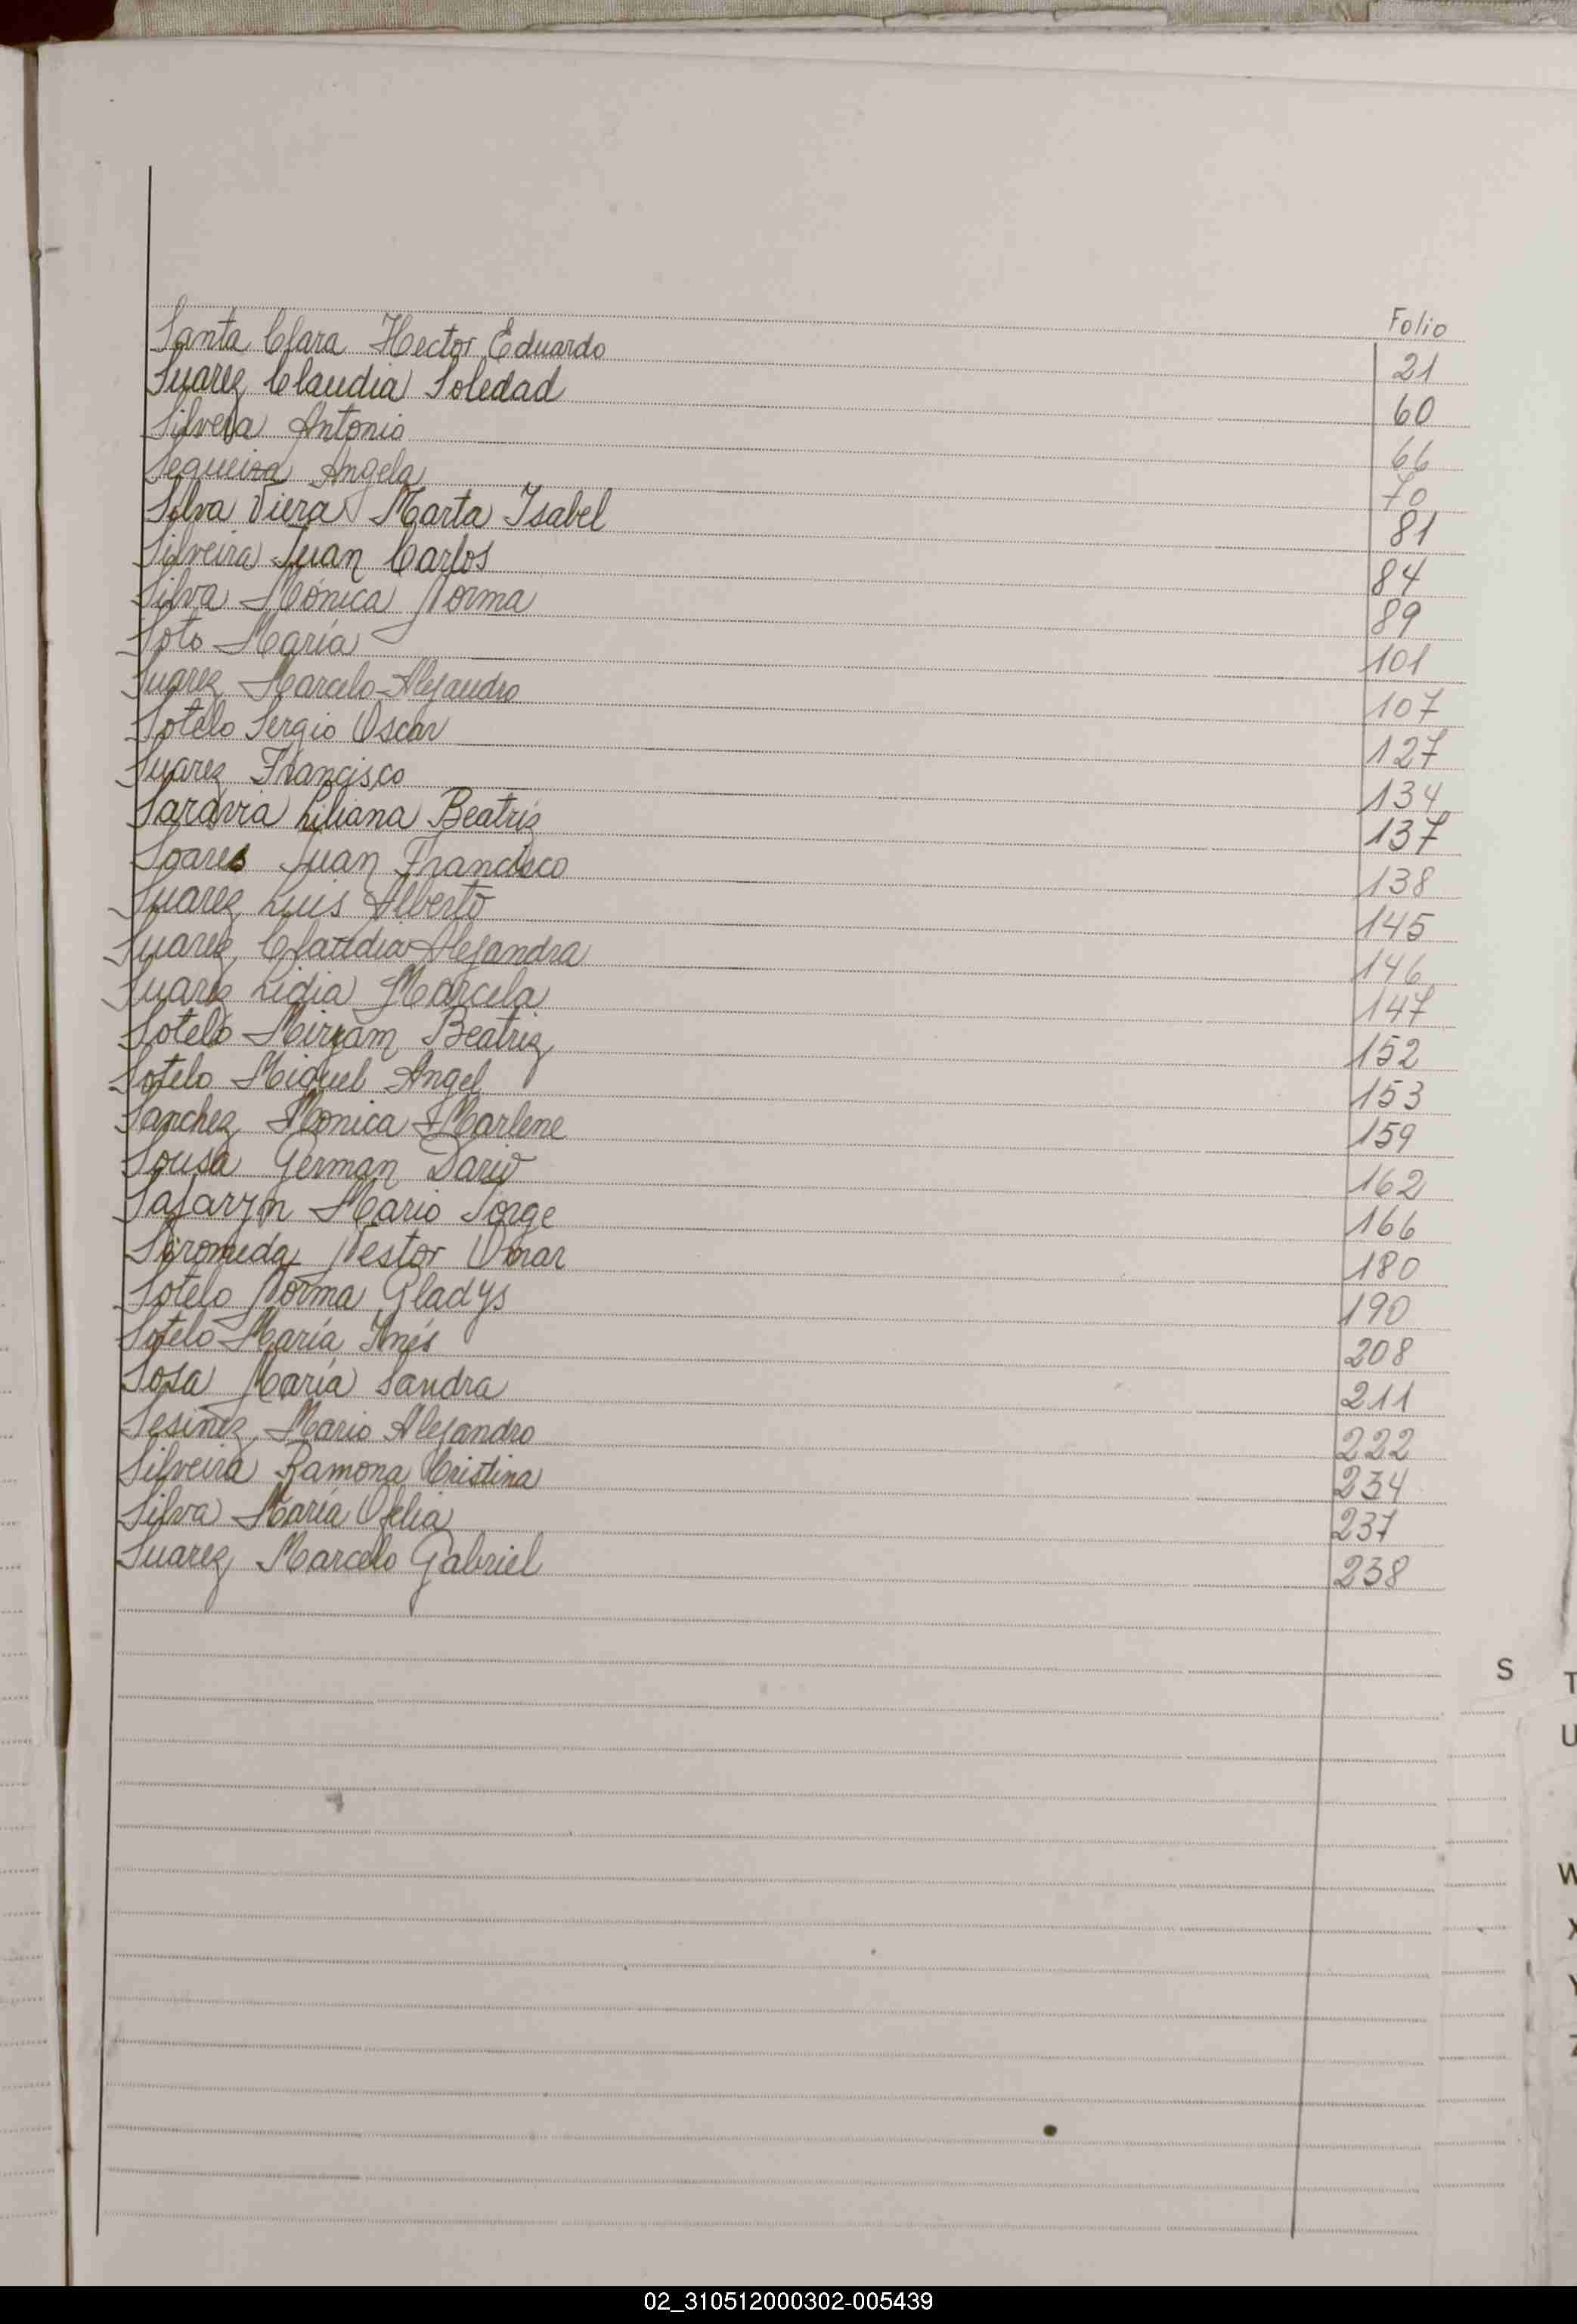 Folio
Santa Clara Hector Eduardo 21
Suarez Claudia Soledad 60
Silvera Antonio 66
Sequeira Angela 70
Silva Viera Marta Isabel 81
Silveira Juan Carlos 84
Silva Mónica Norma 89
Soto María 101
Suarez Marcelo Alejandro 107
Sotelo Sergio Oscar 127
Suarez Francisco 134
Saravia Liliana Beatriz 137
Soares Juan Francisco 138
Suarez Luis Alberto 145
Suarez Claudia Alejandra 146
Suarez Lidia Marcela 147
Sotelo Miryam Beatriz 152
Sotelo Miguel Angel 153
Sanchez Monica Marlene 159
Sousa German Dario 162
Safaryn Mario Jorge 166
Nestor Omar 180
Sotelo Norma Gladys 190
Sotelo María Inés 208
Sosa María Sandra 211
Sesiniz Mario Alejandro 222
Silveira Ramona Cristina 234
Silva María Ofelia 237
Suarez Marcelo Gabriel 238
S
T
U
W
X
Y
Z
02_310512000302-005439